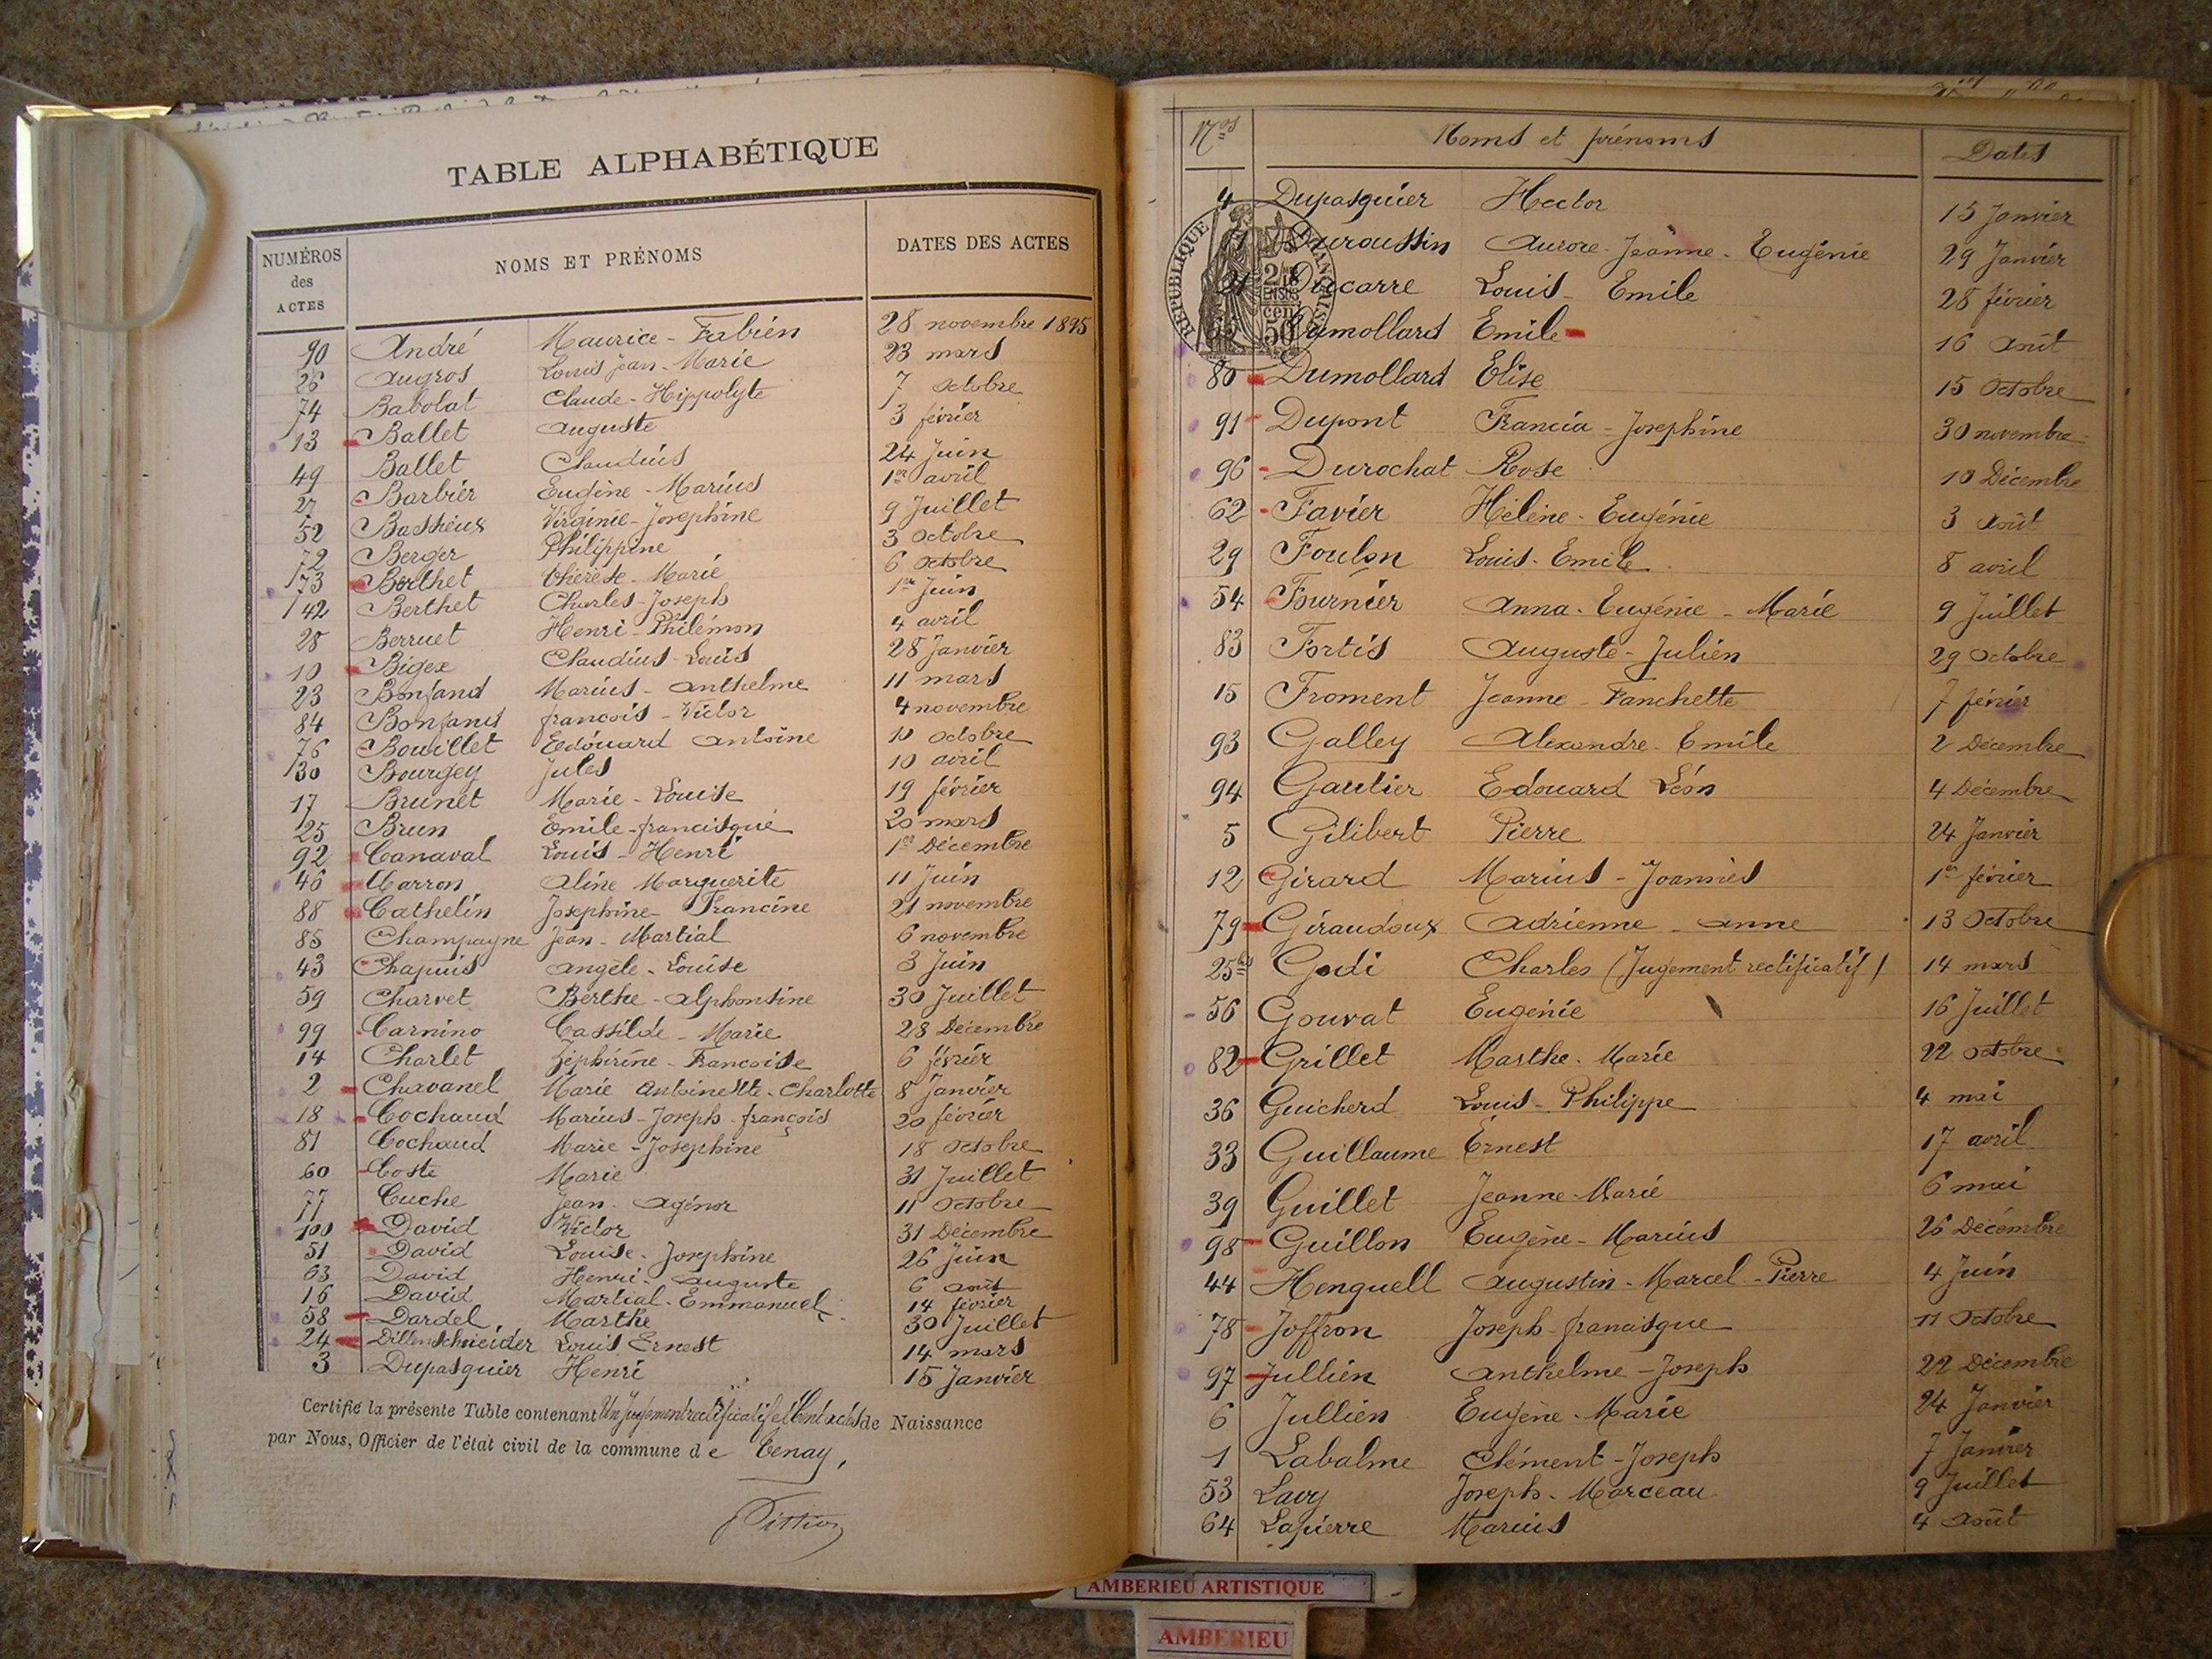 TABLE ALPHABÉTIQUE
NUMÉROS des ACTES NOMS ET PRÉNOMS DATES DES ACTES
90 André Maurice-Fabien 28 novembre 1895
26 Augros Louis jean-Marie 23 mars
74 Babolat Claude-Hippolyte 7 octobre
13 Ballet Auguste 3 février
49 Ballet Claudius 24 Juin
27 Barbier Eugène-Marius 1er avril
52 Bassieux Virginie-Josephine 9 Juillet
72 Berger Philippine 3 octobre
73 Berthet Thérèse-Marie 6 octobre
42 Berthet Charles-Joseph 1er Juin
28 Berruet Henri-Philémon 4 avril
10 Bigex Claudius-Louis 28 Janvier
23 Bonjand Marius-Anthelme 11 mars
84 Bonjand françois-Victor 4 novembre
76 Bouillet Edouard Antoine 10 octobre
30 Bourgey Jules 10 avril
17 Brunet Marie-Louise 19 février
25 Brun Emile-francisque 20 mars
92 Canaval Louis-Henri 1er Décembre
46 Carron Aline Marguerite 11 Juin
88 Cathelin Josephine-Francine 21 novembre
85 Champagne Jean-Martial 6 novembre
43 Chapuis Angèle-Louise 3 Juin
59 Charvet Berthe-Alphonsine 30 Juillet
99 Carnino Cassilde-Marie 28 Décembre
14 Charlet Zéphirine-Francoise 6 février
2 Chavanel Marie Antoinette-Charlotte 8 janvier
18 Cochaud Marius-Joseph-françois 20 février
81 Cochaud Marie-Josephine 18 octobre
60 Coste Marie 31 Juillet
77 Cuche Jean-Agénor 11 octobre
100 David Victor 31 Décembre
51 David Louise-Josephine 26 Juin
63 David Henri-Auguste 6 août
16 David Martial-Emmanuel 14 février
58 Dardel Marthe 30 Juillet
24 Dillenschneider Louis Ernest 14 mars
3 Dupasquier Henri 15 Janvier
Certifié la présente Table contenant Un jugement rectificatif et Cent actes de Naissance
par Nous, Officier de l'état civil de la commune de Tenay,
Nos Noms et prénoms Dates
4 Dupasquier Hector 15 Janvier
Duroussin Aurore-Jeanne-Eugénie 29 Janvier
Ducarre Louis-Emile 28 février
Dumollard Emile 16 août
80 Dumollard Elise 15 octobre
91 Dupont Francia-Josephine 30 novembre
96 Durochat Rose 10 Décembre
62 Favier Hélène-Eugénie 3 août
29 Foulon Louis-Emile 8 avril
54 Fournier Anna-Eugénie-Marie 9 Juillet
83 Fortis Auguste-Julien 29 octobre
15 Froment Jeanne-Fanchette 7 février
93 Galley Alexandre-Emile 2 Décembre
94 Gautier Edouard Léon 4 Décembre
5 Gilibert Pierre 24 Janvier
12 Girard Marius-Joannès 1er février
79 Giraudoux Adrienne-Anne 13 octobre
25bis Godi Charles (Jugement rectificatif) 14 mars
56 Gouvat Eugénie 16 Juillet
82 Grillet Marthe-Marie 22 octobre
36 Guicherd Louis-Philippe 4 mai
33 Guillaume Ernest 17 avril
39 Guillet Jeanne-Marie 6 mai
98 Guillon Eugène-Marius 26 Décembre
44 Henguell Augustin-Marcel-Pierre 4 Juin
78 Joffron Joseph-francisque 11 octobre
97 Jullien Anthelme-Joseph 22 Décembre
6 Jullien Eugène-Marie 24 Janvier
1 Labalme Clément-Joseph 7 Janvier
53 Lavy Joseph-Marceau 9 Juillet
64 Lapierre Marius 4 août
RÉPUBLIQUE FRANÇAISE
AMBERIEU ARTISTIQUE
AMBERIEU